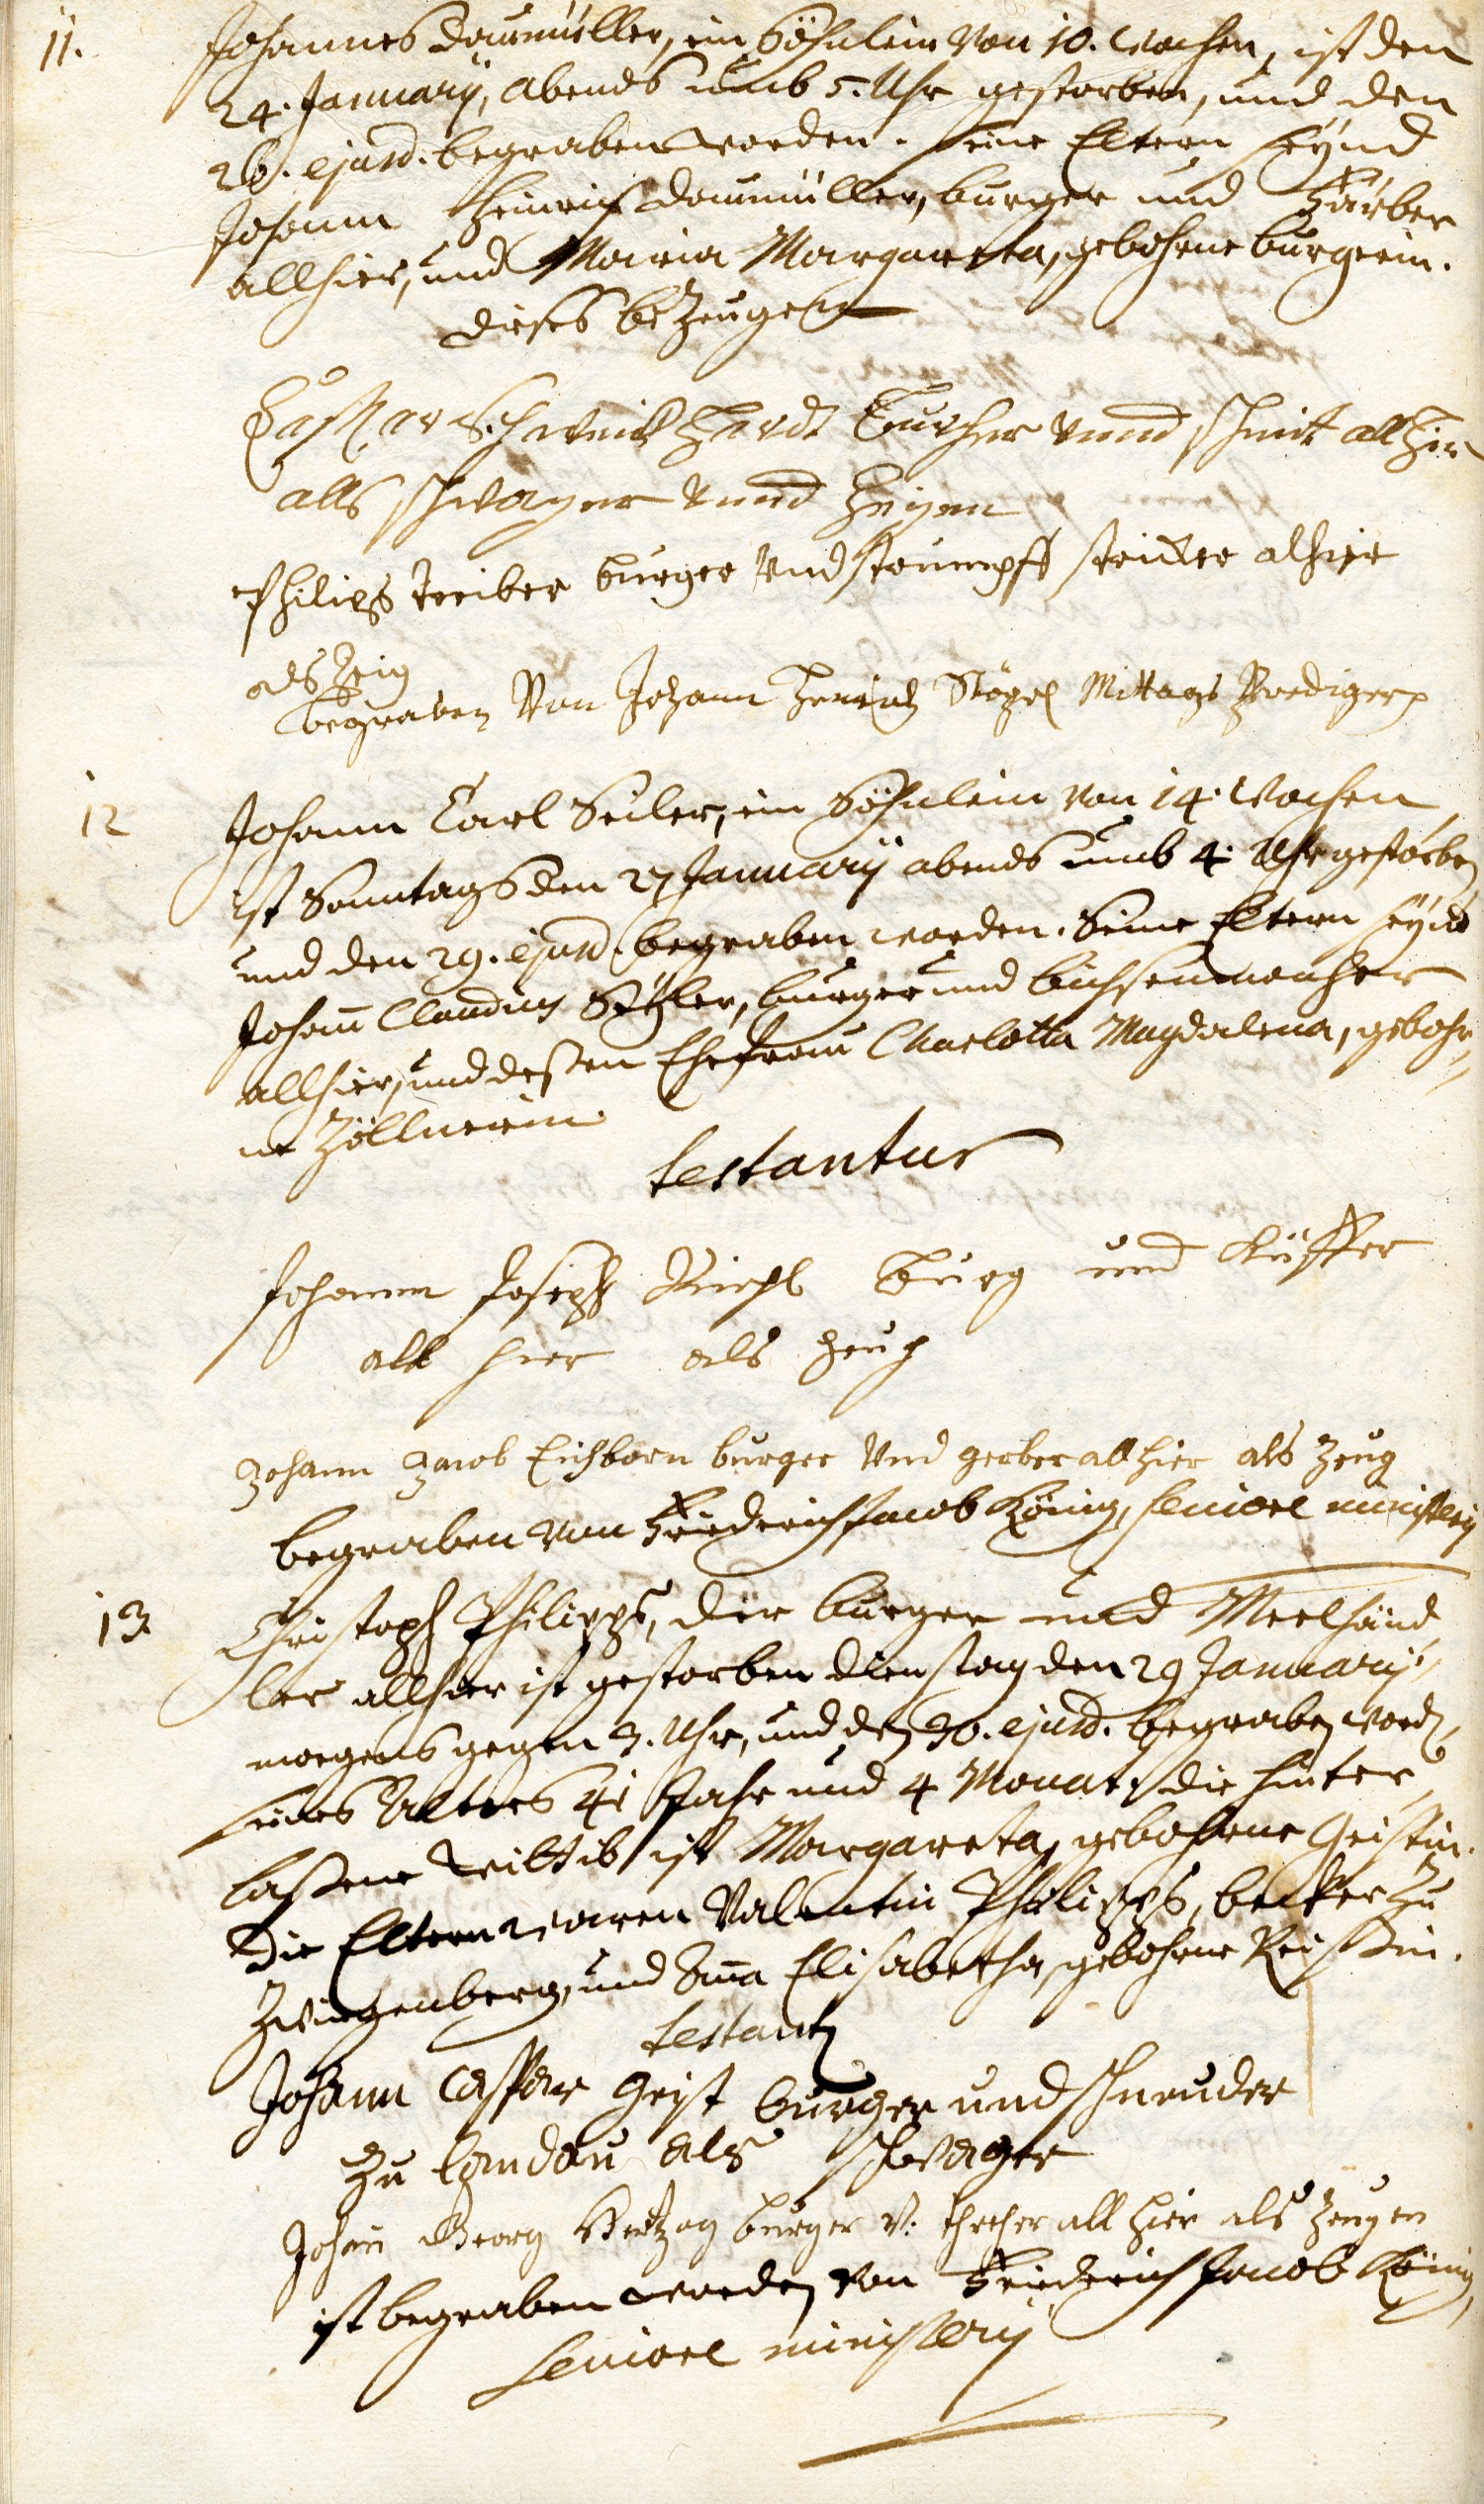 11. Johannes Daumüller, ein Söhnlein von 10. Wochen, ist den
24. Januarij, abends umb 5. Uhr gestorben, und den
26. ejusd. begraben worden. Seine Eltern seynd
Johann Heinrich Daumüller, burger und Färber
allhier, und Maria Margareta, gebohrne burgerin.
dieses bezeugen
Caspar Schweickhardt Burher unnd schmit all hir
alls schwager unnd Zeigen
Philips Treiber burger Vnd strumpff stricker alhier
als Zeig
begraben Von Johann Henrich Stözel Mittags Prediger
12 Johann Carl Seiler, ein Söhnlein von 14. Wochen
ist Sonntags den 27 Januarij abends umb 4. Uhr gestorben
und den 29. ejusd. begraben worden. Seine Eltern seynd
Johann Claudius Seyler, burger und büchsenmacher
allhier, und deßen Ehefrau Charlotta Magdalena, gebohr,,
ne Zöllnerin
testantur
Johann Joseph burg und Küffer
all hier als zeug
Johann Jacob Eichborn burger Vnd gerber all hier als zeug
begraben von Friederich Jacob König, Seniore ministerij
13. Christoph Philipps, der burger und Meelhänd,,
ler allhier ist gestorben Dienstag den 29 Januarij,
morgens gegen 3. Uhr, und den 30. ejusd. begraben word.
seines Alters 41 Jahr und 4 Monat, die hinter,,
laßene Wittib ist Margareta, gebohrne Geistin.
Die Eltern waren Valentin Philipps, becker zu
Zwingenberg, und Anna Elisabetha, gebohrne
testant
Johann Casspar Geist burger und schneuder
zu landau als schwager
Johann Georg Hertzog burger v: all hier als zeugen
ist begraben worden von Friederich Jacob König,
Seniore ministerij